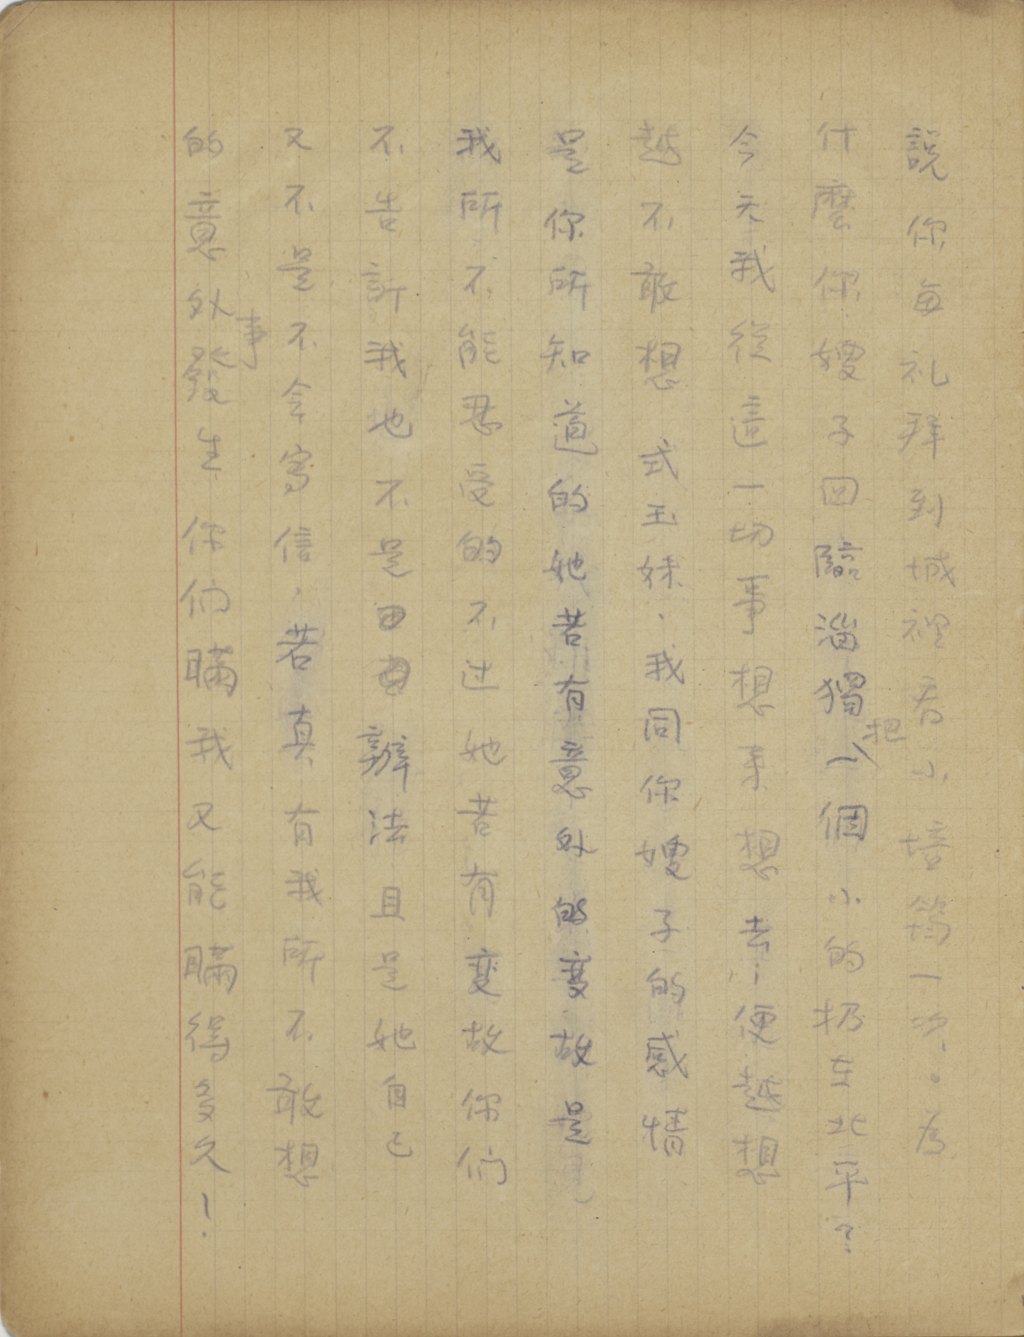 說你每礼拜到城裡看小培筠一次。為
什麼你嫂子回臨淄獨把一個小的扔在北平？
今天我從這一切事想來想去；便越想
越不敢想 式玉妹．我同你嫂子的感情
是你所知道的她若有意外的变故是
我所不能忍受的不过她若有变故你们
不告訴我也不是田辦法且是她自己
又不是不会寫信，若真有我所不敢想
的意外事發生 你们瞞我又能瞞得多久！